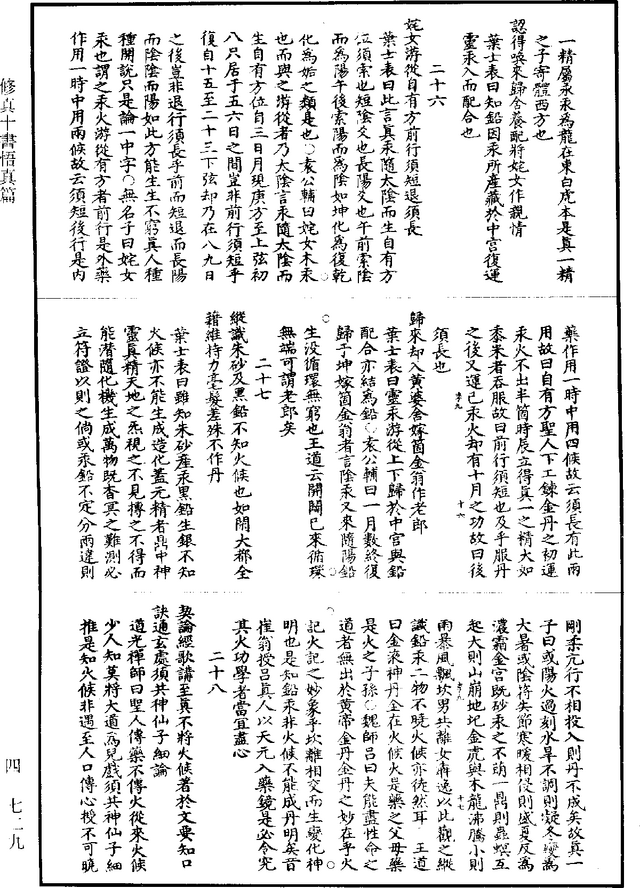 一精屬永汞為龍在東白虎本是真一精
之子寄體西方也
認得喚來歸舍養配將姹女作親情
葉士表曰知鉛因汞所產藏於中宮復運
靈汞入而配合也
二十六
姹女游從自有方前行須短退須長
葉士表曰此言真汞隨太陰而生自有方
位須索也短陰爻也長陽爻也午前索陰
而為陽午後索陽而為陰如坤化為復乾
化為姤之類是也○袁公輔曰姹女木汞
也而與之游從者乃太陰言汞隨太陰而
生自有方位自三日月現庚方至上弦初
八只居于五六日之間豈非前行須短乎
復自十五至二十三下弦却乃在八九日
之後豈非退行須長乎前而短退而長陽
而陰陰而陽如此方能生生不窮真人種
種開說只是論一中字○無名子曰姹女
汞也謂之汞火游從有方者前行是外藥
作用一時中用兩候故云須短後行是內
藥作用一時中用四候故云須長有此兩
用故曰自有方聖人下工鍊金丹之初運
汞火不出半箇時辰立得真一之精大如
黍米者吞服故曰前行須短也及乎服丹
之後又運已汞火却有十月之功故曰後
須長也
歸來却入黃婆舍嫁箇金翁作老郎
葉士表曰靈汞游從上下歸於中宮與鉛
配合亦結為鉛○袁公輔曰一月數終復
歸于坤嫁箇金翁者言陰汞又來隨陽鉛
生沒循環無窮也王道云開闢已來循環
無端可謂老郎矣
二十七
縱識朱砂及黑鉛不知火候也如閑大都全
藉維持力毫髮差殊不作丹
葉士表曰雖知朱砂產汞黑鉛生銀不知
火候亦不能生成造化蓋元精者鼎中神
靈真精天地之炁視之不見摶之不得而
能潛隨化機生成萬物既杳冥之難測必
立符證以則之倘或汞鉛不定分兩違則
剛柔亢行不相投入則丹不成矣故真一
子曰或陽火過刻水旱不調則凝冬變為
大暑或陰符失節寒暖相侵則盛夏反為
濃霜金宮既砂汞之不萌一鼎則蟲螟互
起大則山崩地圮金虎與木龍沸騰小則
雨暴風飄坎男共離女奔逸以此觀之縱
識鉛汞二物不曉火候亦徒然耳○王道
曰金液神丹全在火候火是藥之父母藥
是火之子孫○魏師呂曰夫能盡性命之
道者無出於黃帝金丹金丹之妙在乎火
記火記之妙象乎坎離相交而生變化神
明也是知鉛汞非火候不能成丹明矣昔
崔翁授呂真人以天元入藥鏡是必令究
其火功學者當宜盡心
二十八
契論經歌講至真不將火候著於文要知口
訣通玄處須共神仙子細論
道光禪師曰聖人傳藥不傳火從來火候
少人知莫將大道為兒戲須共神仙子細
推是知火候非遇至人口傳心授不可曉
修真十書悟真篇
四 七二九